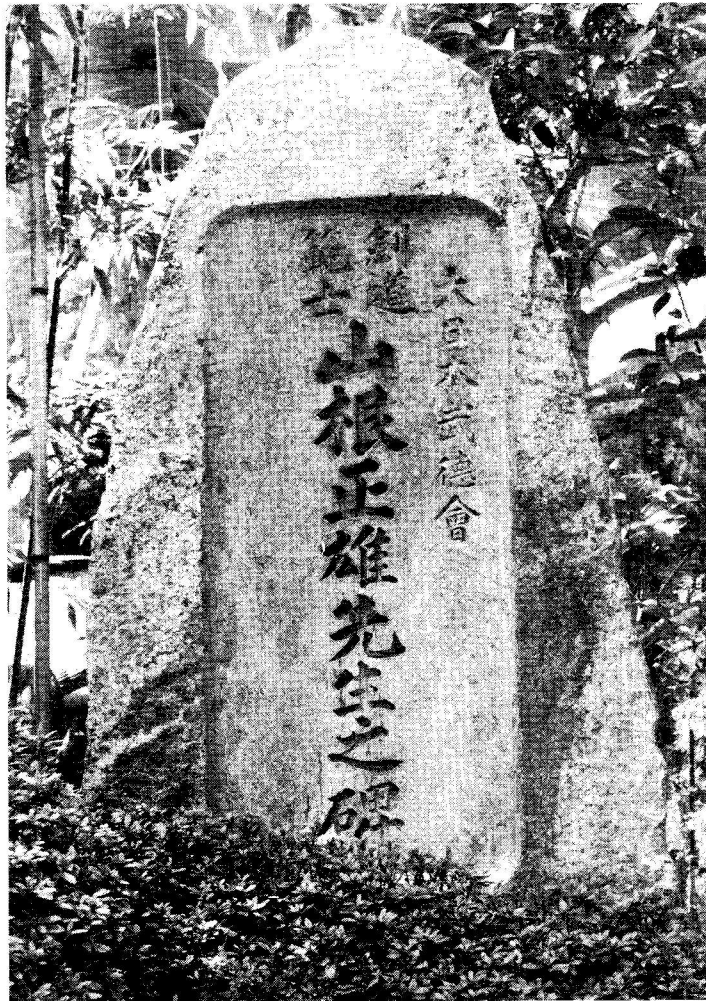 大日本武徳會
劍道
範士
山根正雄先生之碑